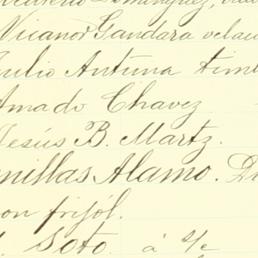 Dominguez,
Vicanor Gandara velad
Julio Antuna tim
Amado Chavez
Jesús B. Martz.
nillas Alamo. D
on frijól.
Soto. á